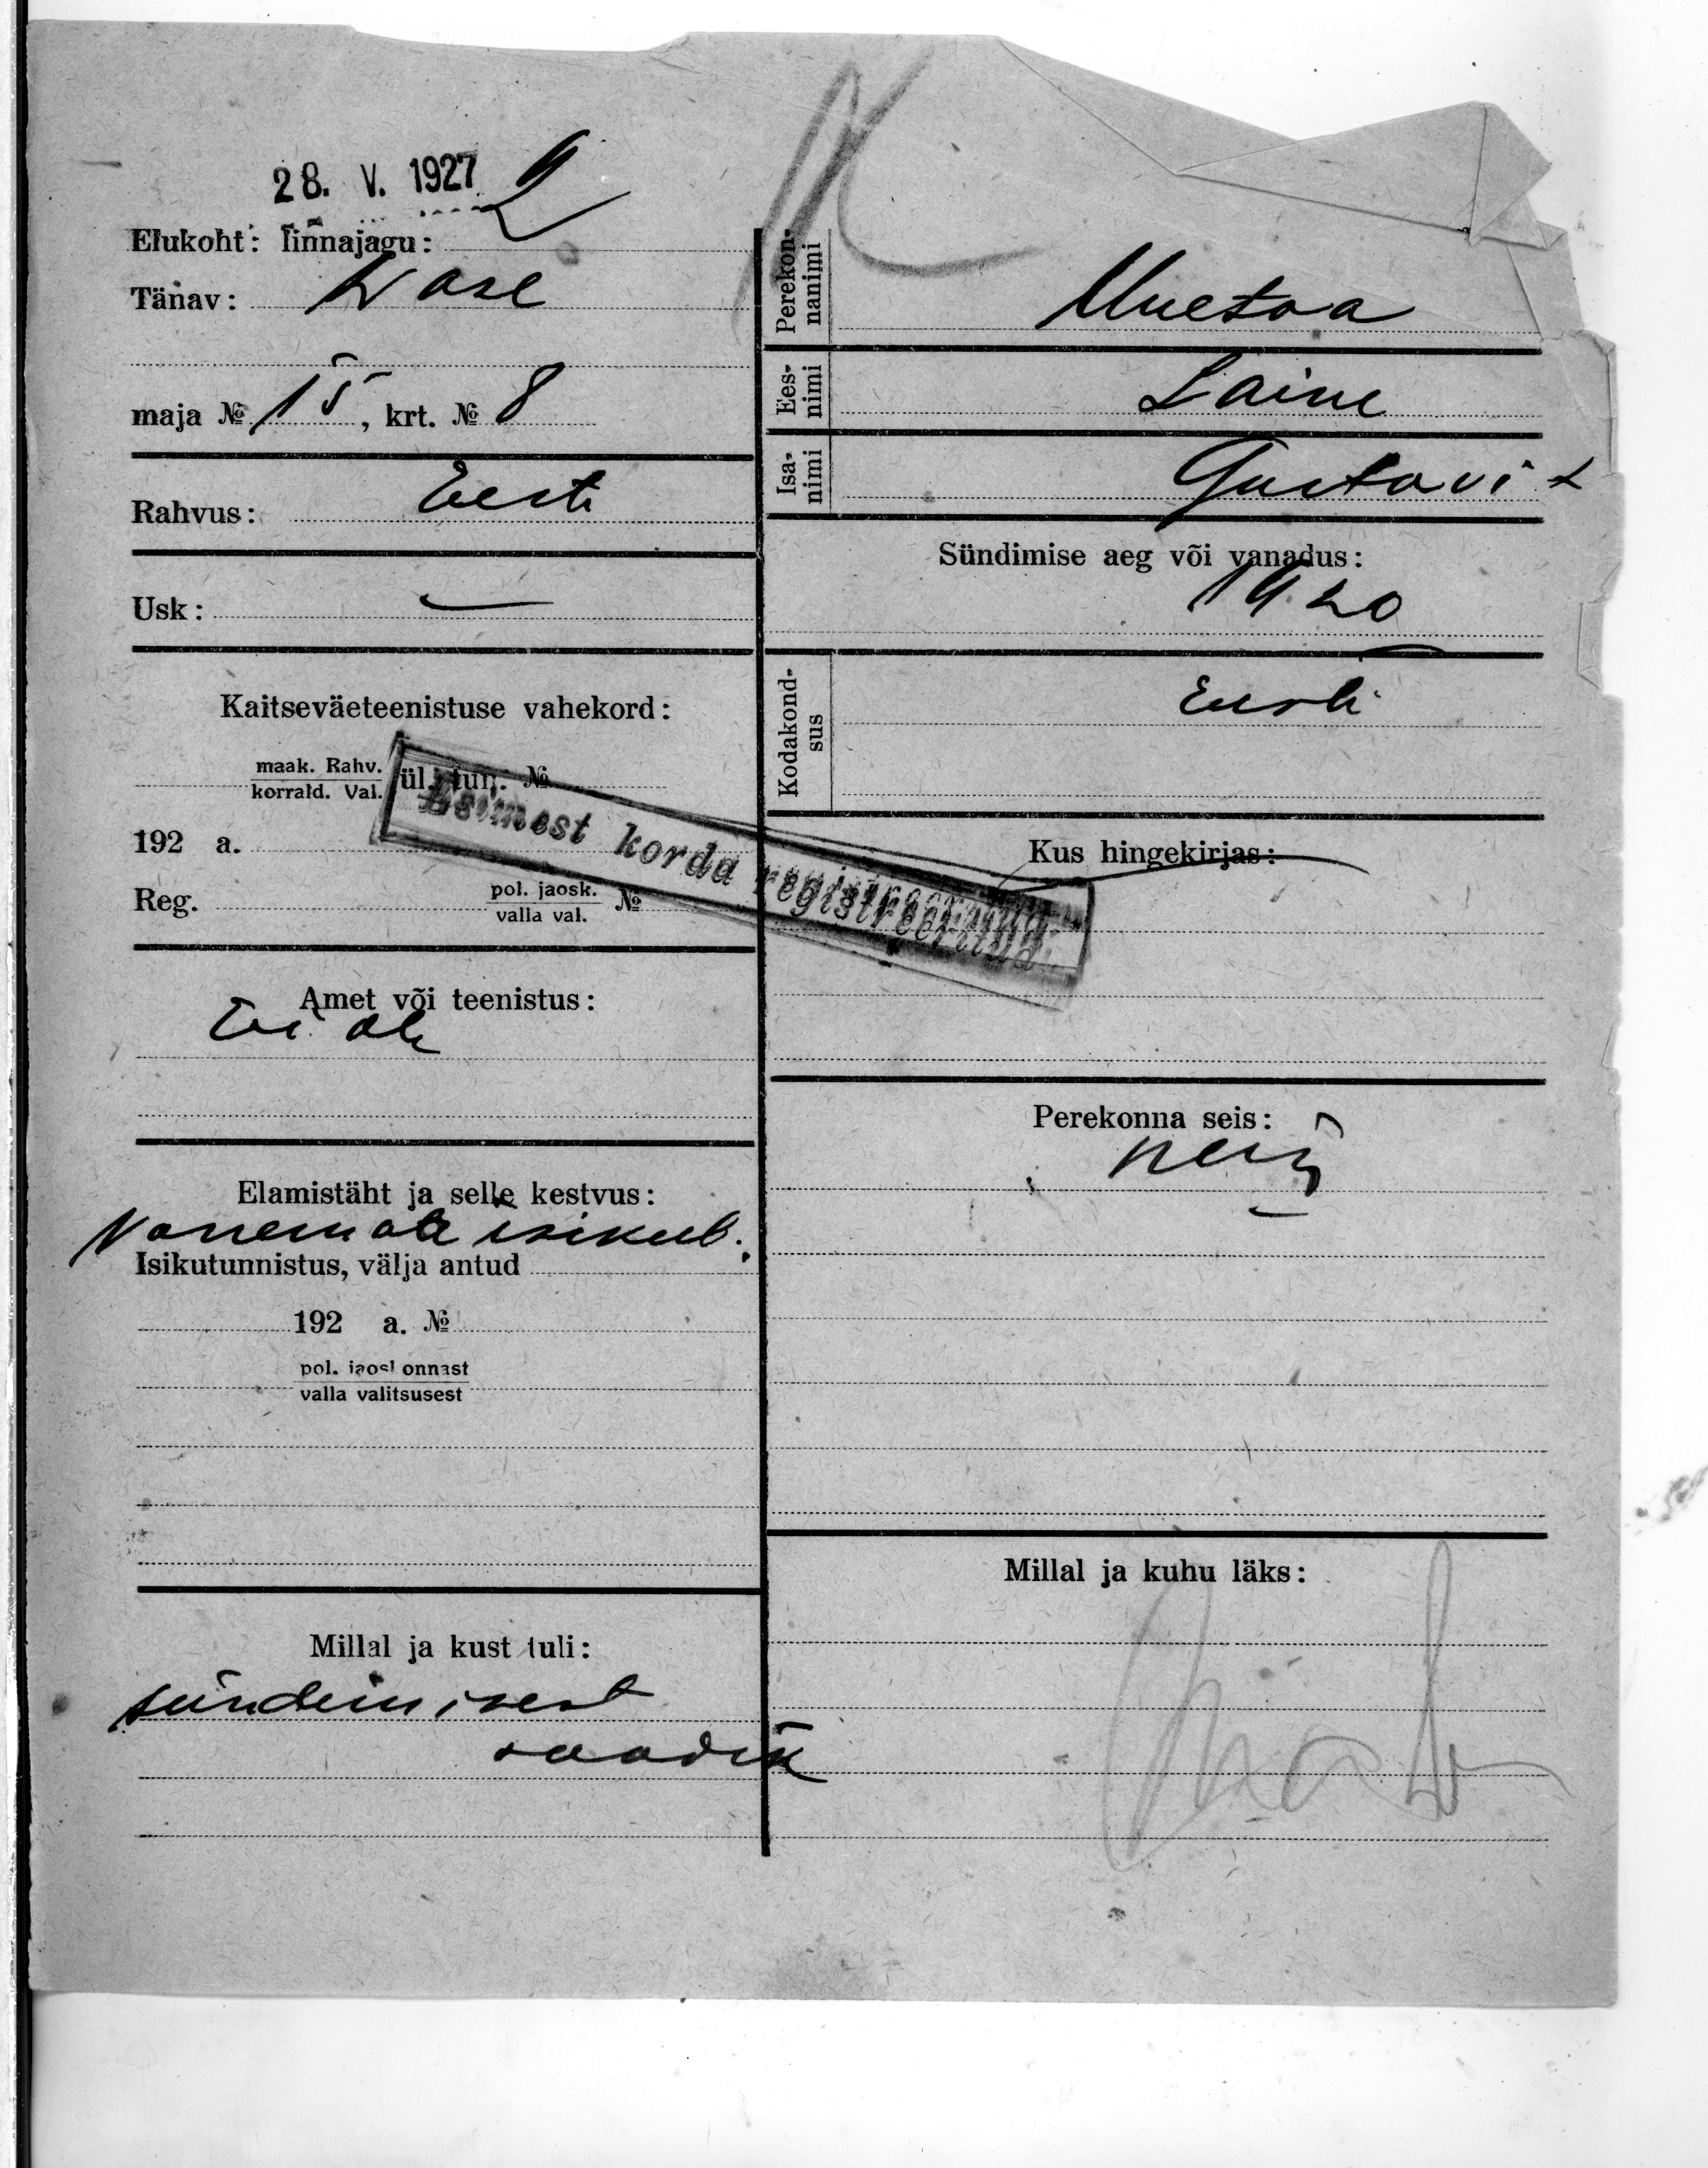 28. V. 1927
2
Elukoht: linnajagu:
Tänav: Wase
maja № 15, krt. № 8
Rahvus: Eesti
Usk: —
Kaitseväeteenistuse vahekord:
maak. Rahv.
korrald. Val. ül. tun. №
192 a.
Reg. pol. jaosk. №
valla val.
Esimest korda registreeritud.
Amet või teenistus:
Ei ole
Elamistäht ja selle kestvus:
Vanemate isikut.
Isikutunnistus, välja antud
192 a. №
pol. jaoskonnast
valla valitsusest
Millal ja kust tuli:
sündimisest
saadik
Perekon-
nanimi
Uuetoa
Ees-
nimi
Laine
Isa-
nimi
Gustavi t
Sündimise aeg või vanadus:
1920
Kodakond-
sus
Eesti
Kus hingekirjas:
Perekonna seis:
neiu
Millal ja kuhu läks: